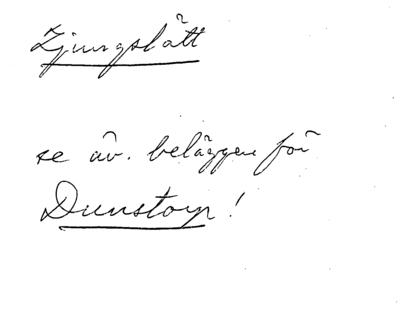 Ljungslätt
se äv. beläggen för
Dunstorp!